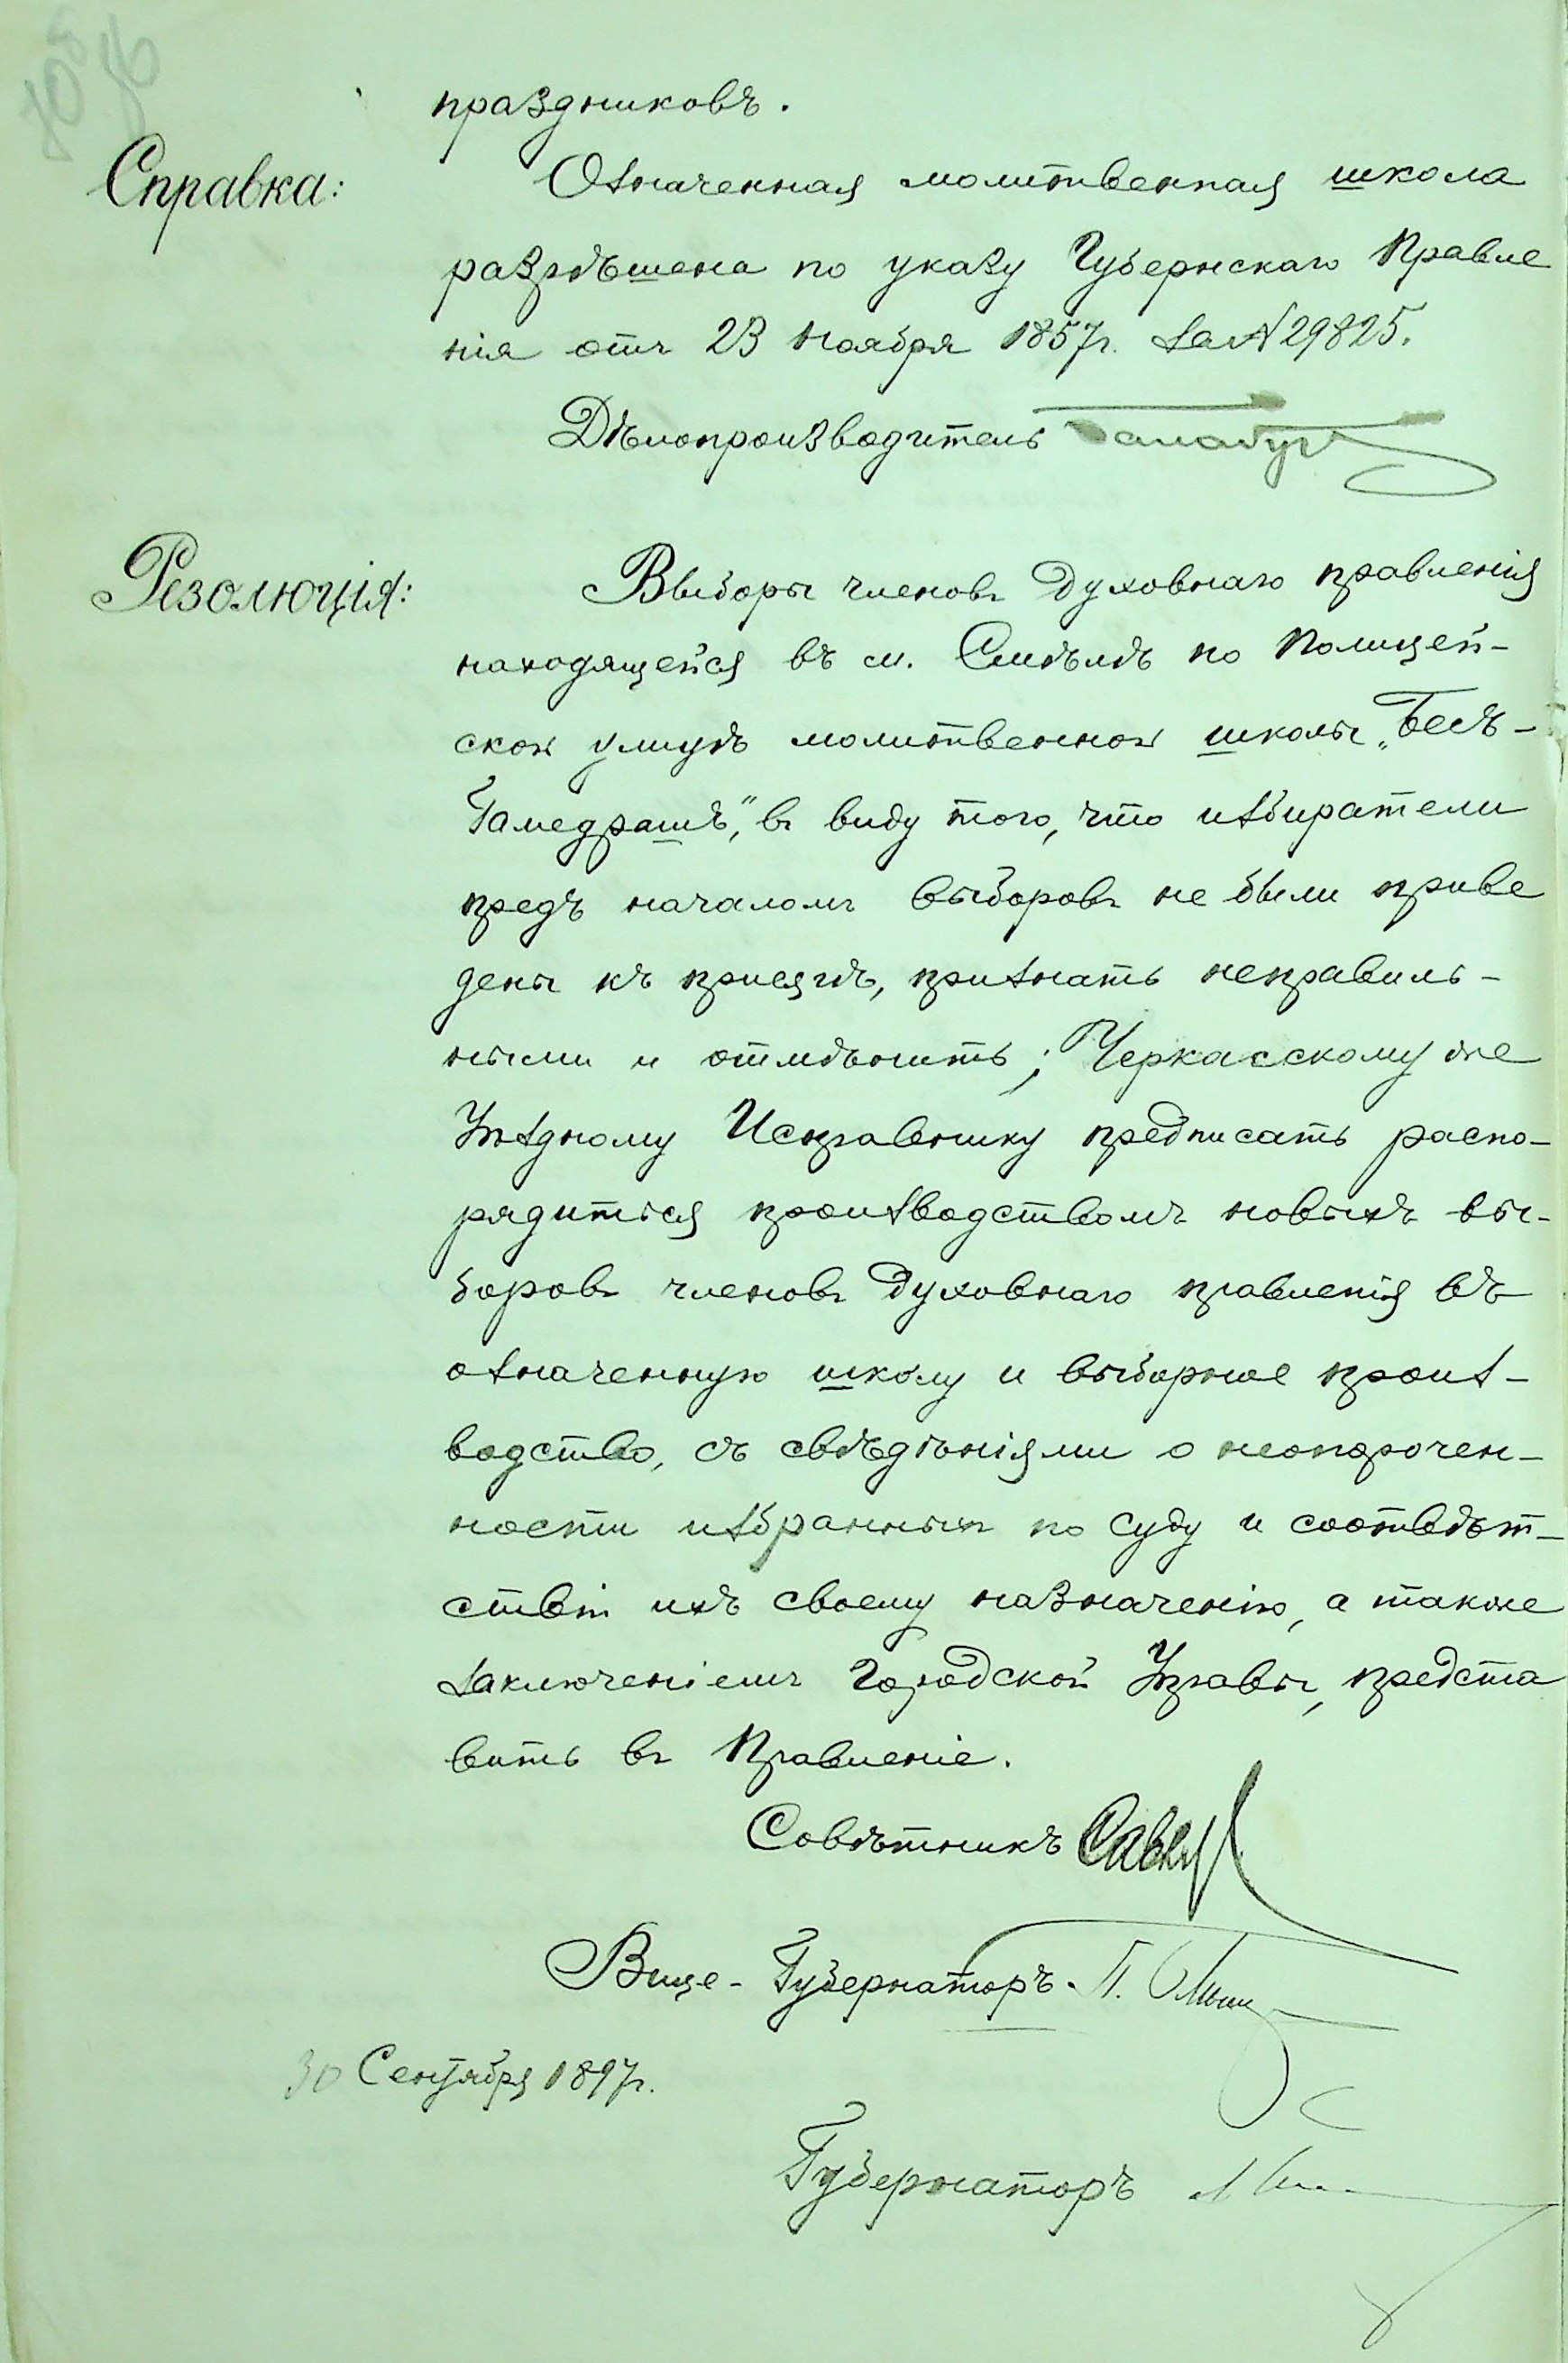 праздниковъ.
Справка:
Означенная молитвенная школа
разрѣшена по указу Губернскаго Правле
нія отъ 23 Ноября 1857г. за № 29825.
Дѣлопроизводитель
Резолюція:
Выборы членовъ духовнаго правленія
находящейся въ м. Смѣлѣ по Полицей-
ской улицѣ молитвенной школы „Бетъ-
Гамедрашъ", въ виду того, что избиратели
предъ началомъ выборовъ не были приве
дены къ присягѣ, признать неправиль-
ными и отмѣнить; Черкасскому же
Уѣздному Исправнику предписать распо-
рядиться производствомъ новыхъ вы-
боровъ членовъ духовнаго правленія въ
означенную школу и выборное произ-
водство, съ свѣдѣніями о неопорочен-
ности избранныхъ по суду и соотвѣт-
ствіи ихъ своему назначенію, а также
заключеніемъ Городской Управы, предста
вить въ Правленіе.
Совѣтникъ
Вице-Губернаторъ
30 Сентября 1897г.
Губернаторъ